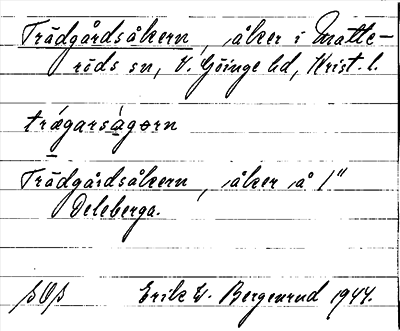 Trädgårdsåkern, åker i Matte-
röds sn, V. Göinge hd, Krist. l.
trǽgarságɘrn
Trädgårdsåkern, åker å 1"
Deleberga.
Erik W. Bergenrud 1944.